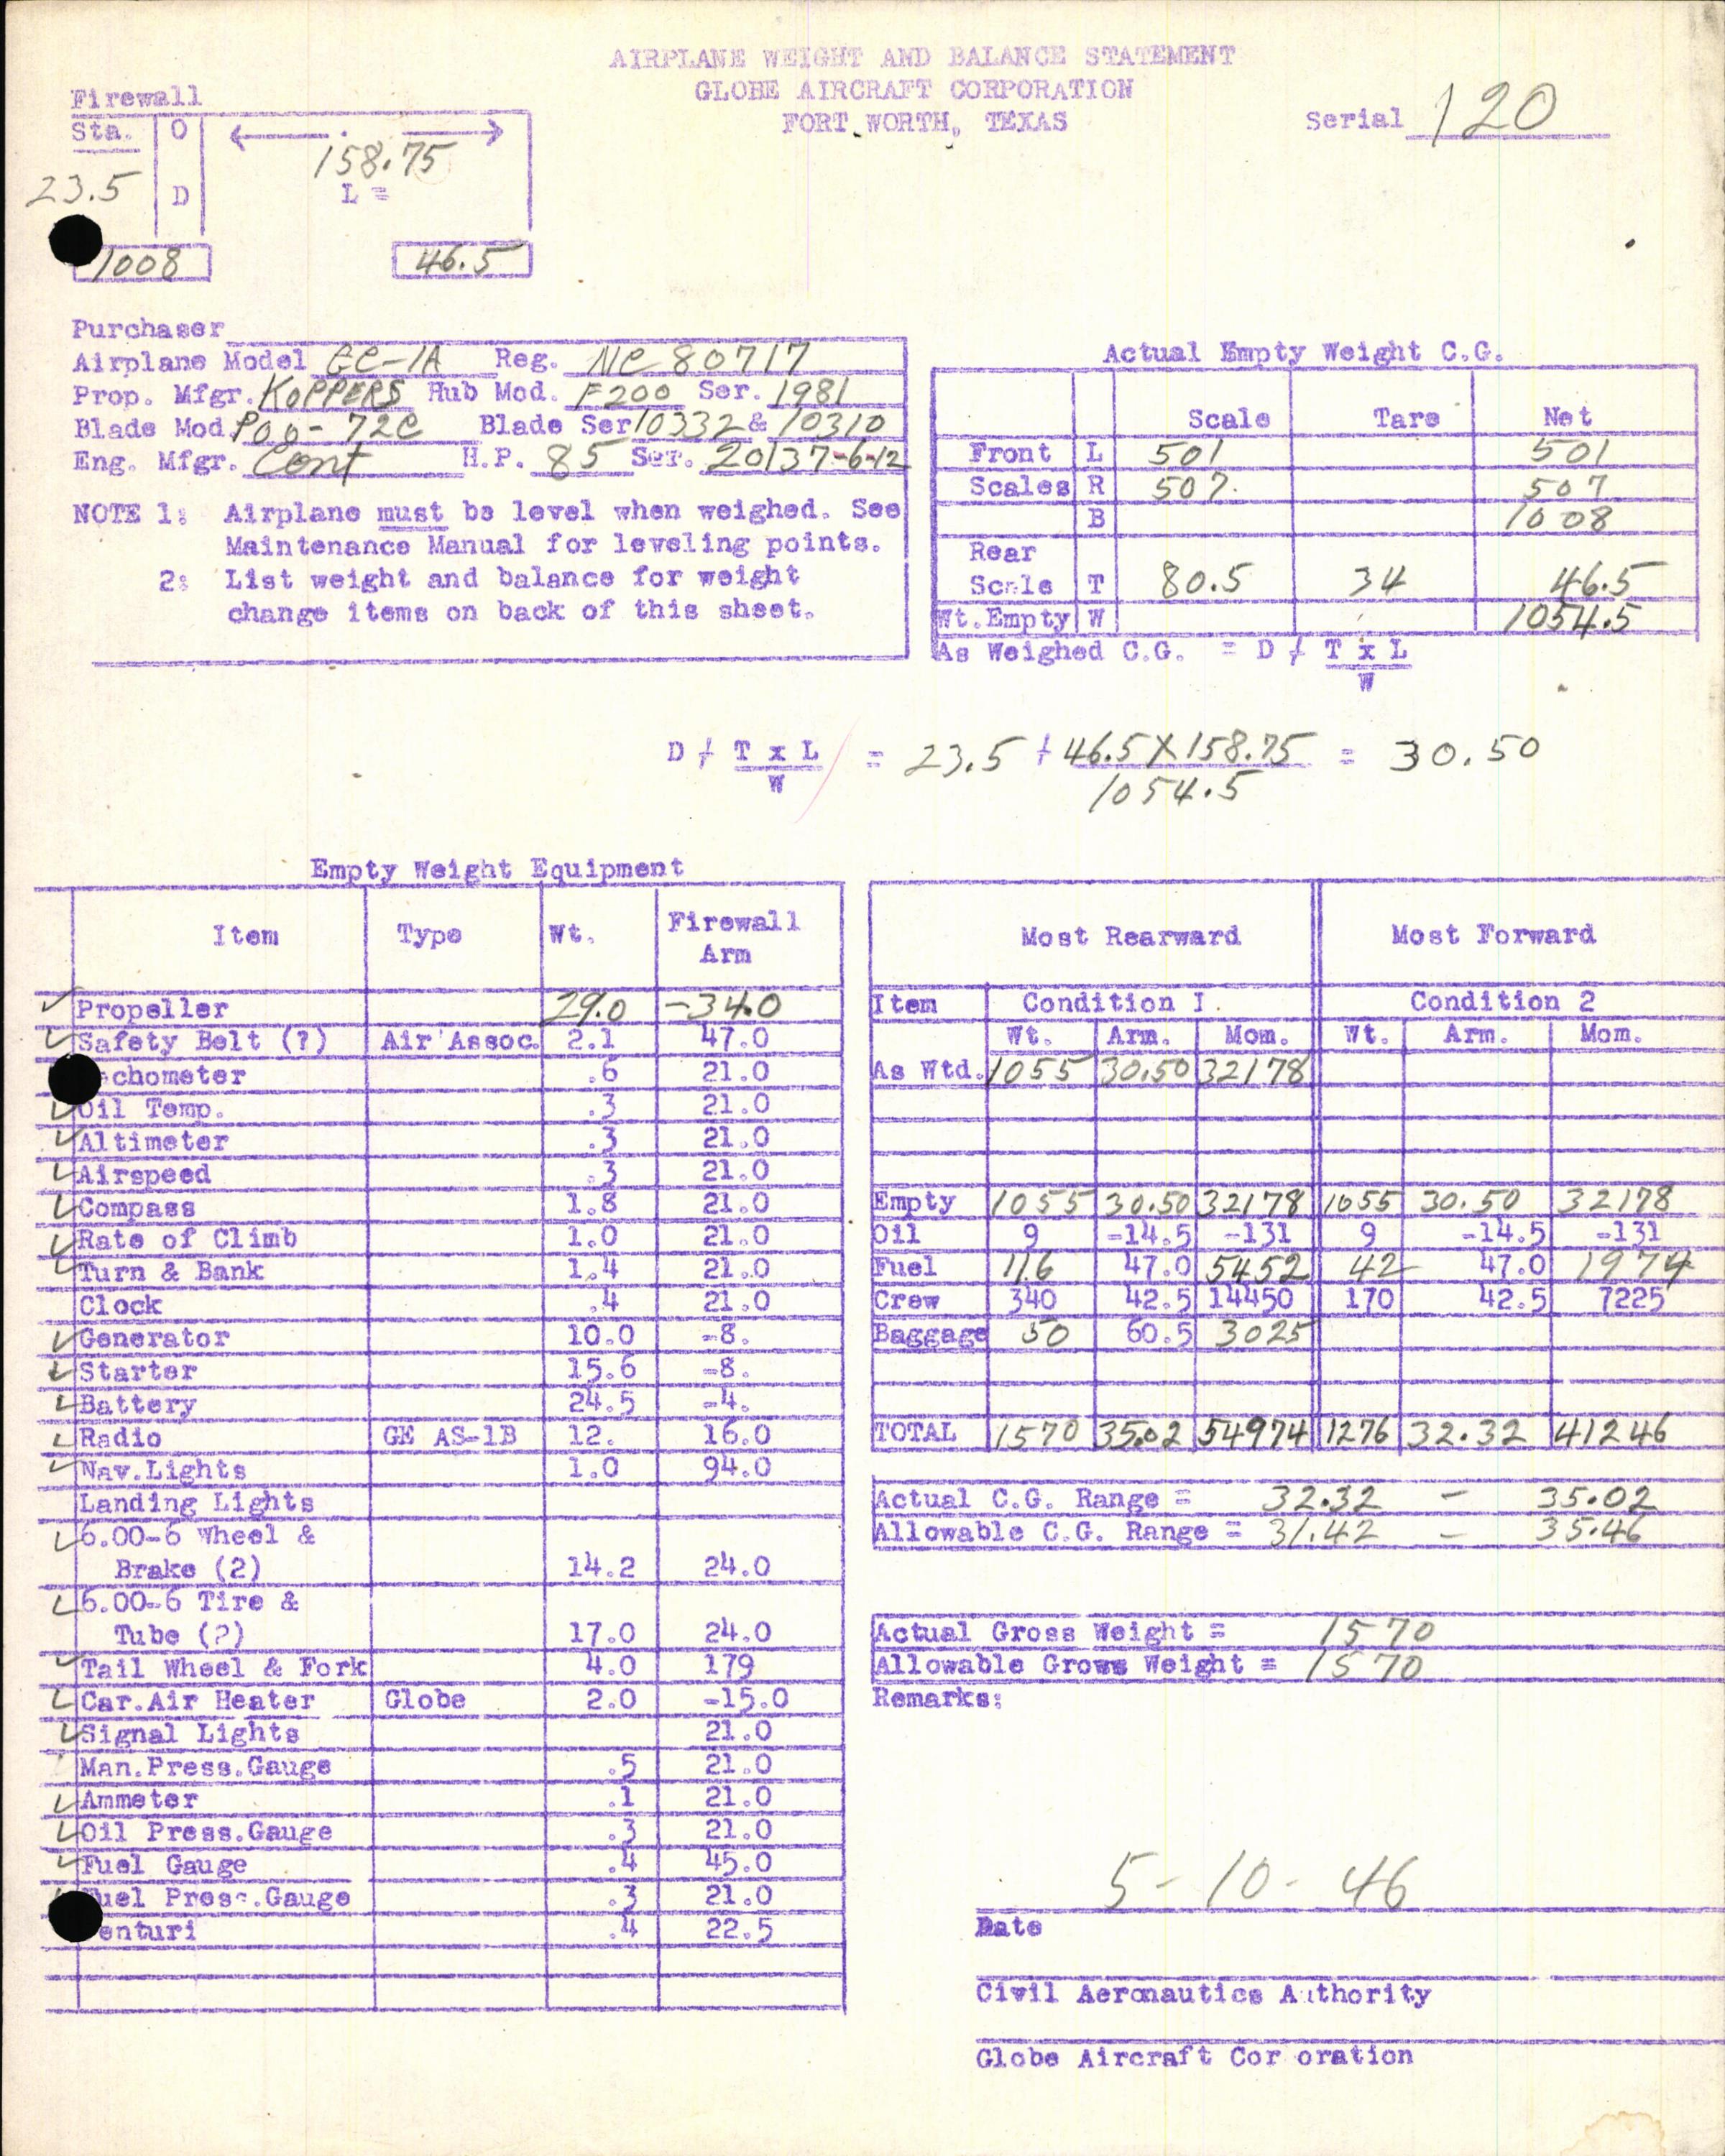 AIRPLANE WEIGHT AND BALANCE STATEMENT
GLOBE AIRCRAFT CORPORATION
FORT WORTH, TEXAS
Serial 120
Firewall
Sta. O
158.75
23.5 D L =
1008 46.5
Purchaser
Airplane Model GC-1A Reg. NC 80717
Prop. Mfgr. KOPPERS Hub Mod. F200 Ser. 1981
Blade Mod. Blade Ser 10332 & 10310
Eng. Mfgr. Cont H.P. 85 Ser. 20137-6-12
NOTE 1: Airplane must be level when weighed. See
Maintenance Manual for leveling points.
2: List weight and balance for weight
change items on back of this sheet.
Actual Empty Weight C.G.
Scale Tare Net
Front L 501 501
Scales R 507. 507
B 1008
Rear
Scale T 80.5 34 46.5
Wt.Empty W 1054.5
As Weighed C.G. = D + T x L
W
D + T x L = 23.5 + 46.5 X 158.75 = 30.50
W 1054.5
Empty Weight Equipment
Item Type Wt. Firewall
Arm
Propeller 29.0 -34.0
Safety Belt (?) Air Assoc. 2.1 47.0
chometer .6 21.0
Oil Temp. .3 21.0
Altimeter .3 21.0
Airspeed .3 21.0
Compass 1.8 21.0
Rate of Climb 1.0 21.0
Turn & Bank 1.4 21.0
Clock .4 21.0
Generator 10.0 -8.
Starter 15.6 -8.
Battery 24.5 -4.
Radio GE AS-1B 12. 16.0
Nav.Lights 1.0 94.0
Landing Lights
6.00-6 Wheel &
Brake (2) 14.2 24.0
6.00-6 Tire &
Tube (2) 17.0 24.0
Tail Wheel & Fork 4.0 179
Car.Air Heater Globe 2.0 -15.0
Signal Lights 21.0
Man.Press.Gauge .5 21.0
Ammeter .1 21.0
Oil Press.Gauge .3 21.0
Fuel Gauge .4 45.0
Fuel Press.Gauge .3 21.0
enturi .4 22.5
Most Rearward Most Forward
Item Condition I. Condition 2
Wt. Arm. Mom. Wt. Arm. Mom.
As Wtd. 1055 30.50 32178
Empty 1055 30.50 32178 1055 30.50 32178
Oil 9 -14.5 -131 9 -14.5 -131
Fuel 116 47.0 5452 42 47.0 1974
Crew 340 42.5 14450 170 42.5 7225
Baggage 50 60.5 3025
TOTAL 1570 35.02 54974 1276 32.32 41246
Actual C.G. Range = 32.32 - 35.02
Allowable C.G. Range = 31.42 - 35.46
Actual Gross Weight = 1570
Allowable Gross Weight = 1570
Remarks:
5-10-46
Date
Civil Aeronautics Authority
Globe Aircraft Cor oration